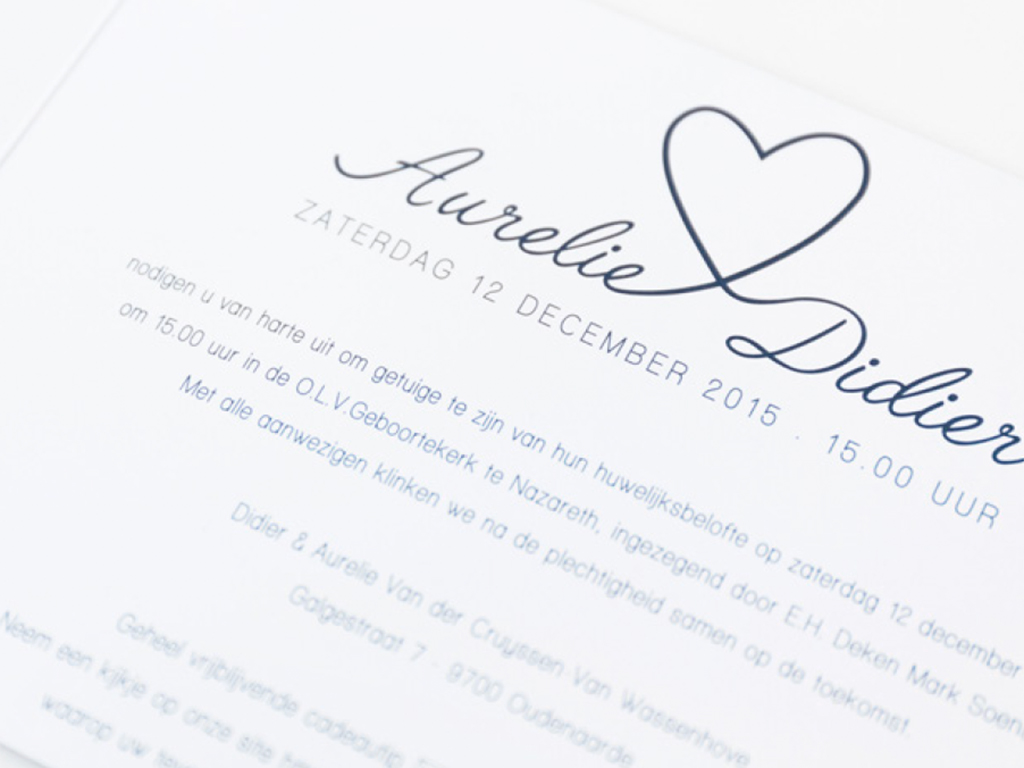 Aurelie Didier
ZATERDAG 12 DECEMBER 2015 . 15.00 UUR
nodigen u van harte uit om getuige te zijn van hun huwelijksbelofte op zaterdag 12 december
om 15.00 uur in de O.L.V.Geboortekerk te Nazareth, ingezegend door E.H. Deken Mark
Met alle aanwezigen klinken we na de plechtigheid samen op de toekomst.
Didier & Aurelie Van der Cruyssen-Van Wassenhove
Galgestraat 7 - 9700 Oudenaarde
Geheel vrijblijvende cadeautip,
Neem een kijkje op onze site
waarop uw